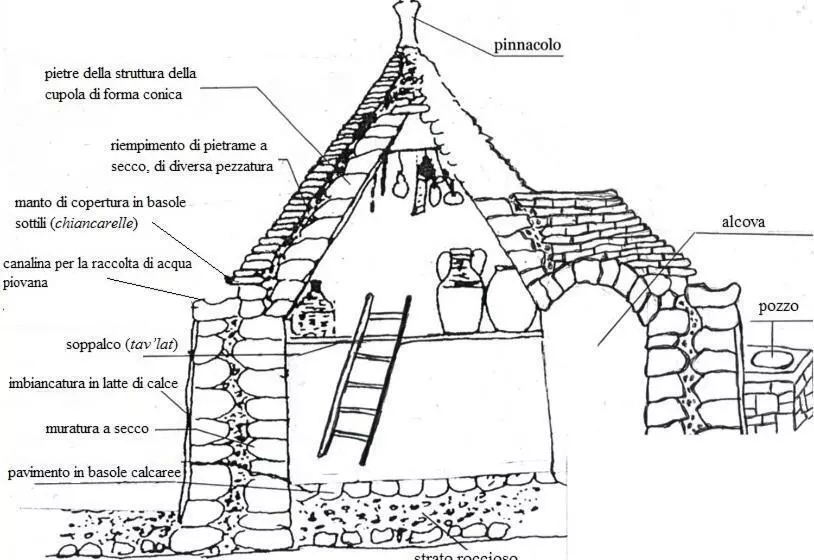 pinnacolo
pietre della struttura della
cupola di forma conica
riempimento di pietrame a
secco, di diversa pezzatura
manto di copertura in basole
sottili (chiancarelle)
alcova
canalina per la raccolta di acqua
piovana
pozzo
soppalco (tav'lat)
imbiancatura in latte di calce
muratura a secco
pavimento in basole calcaree
strato roccioso